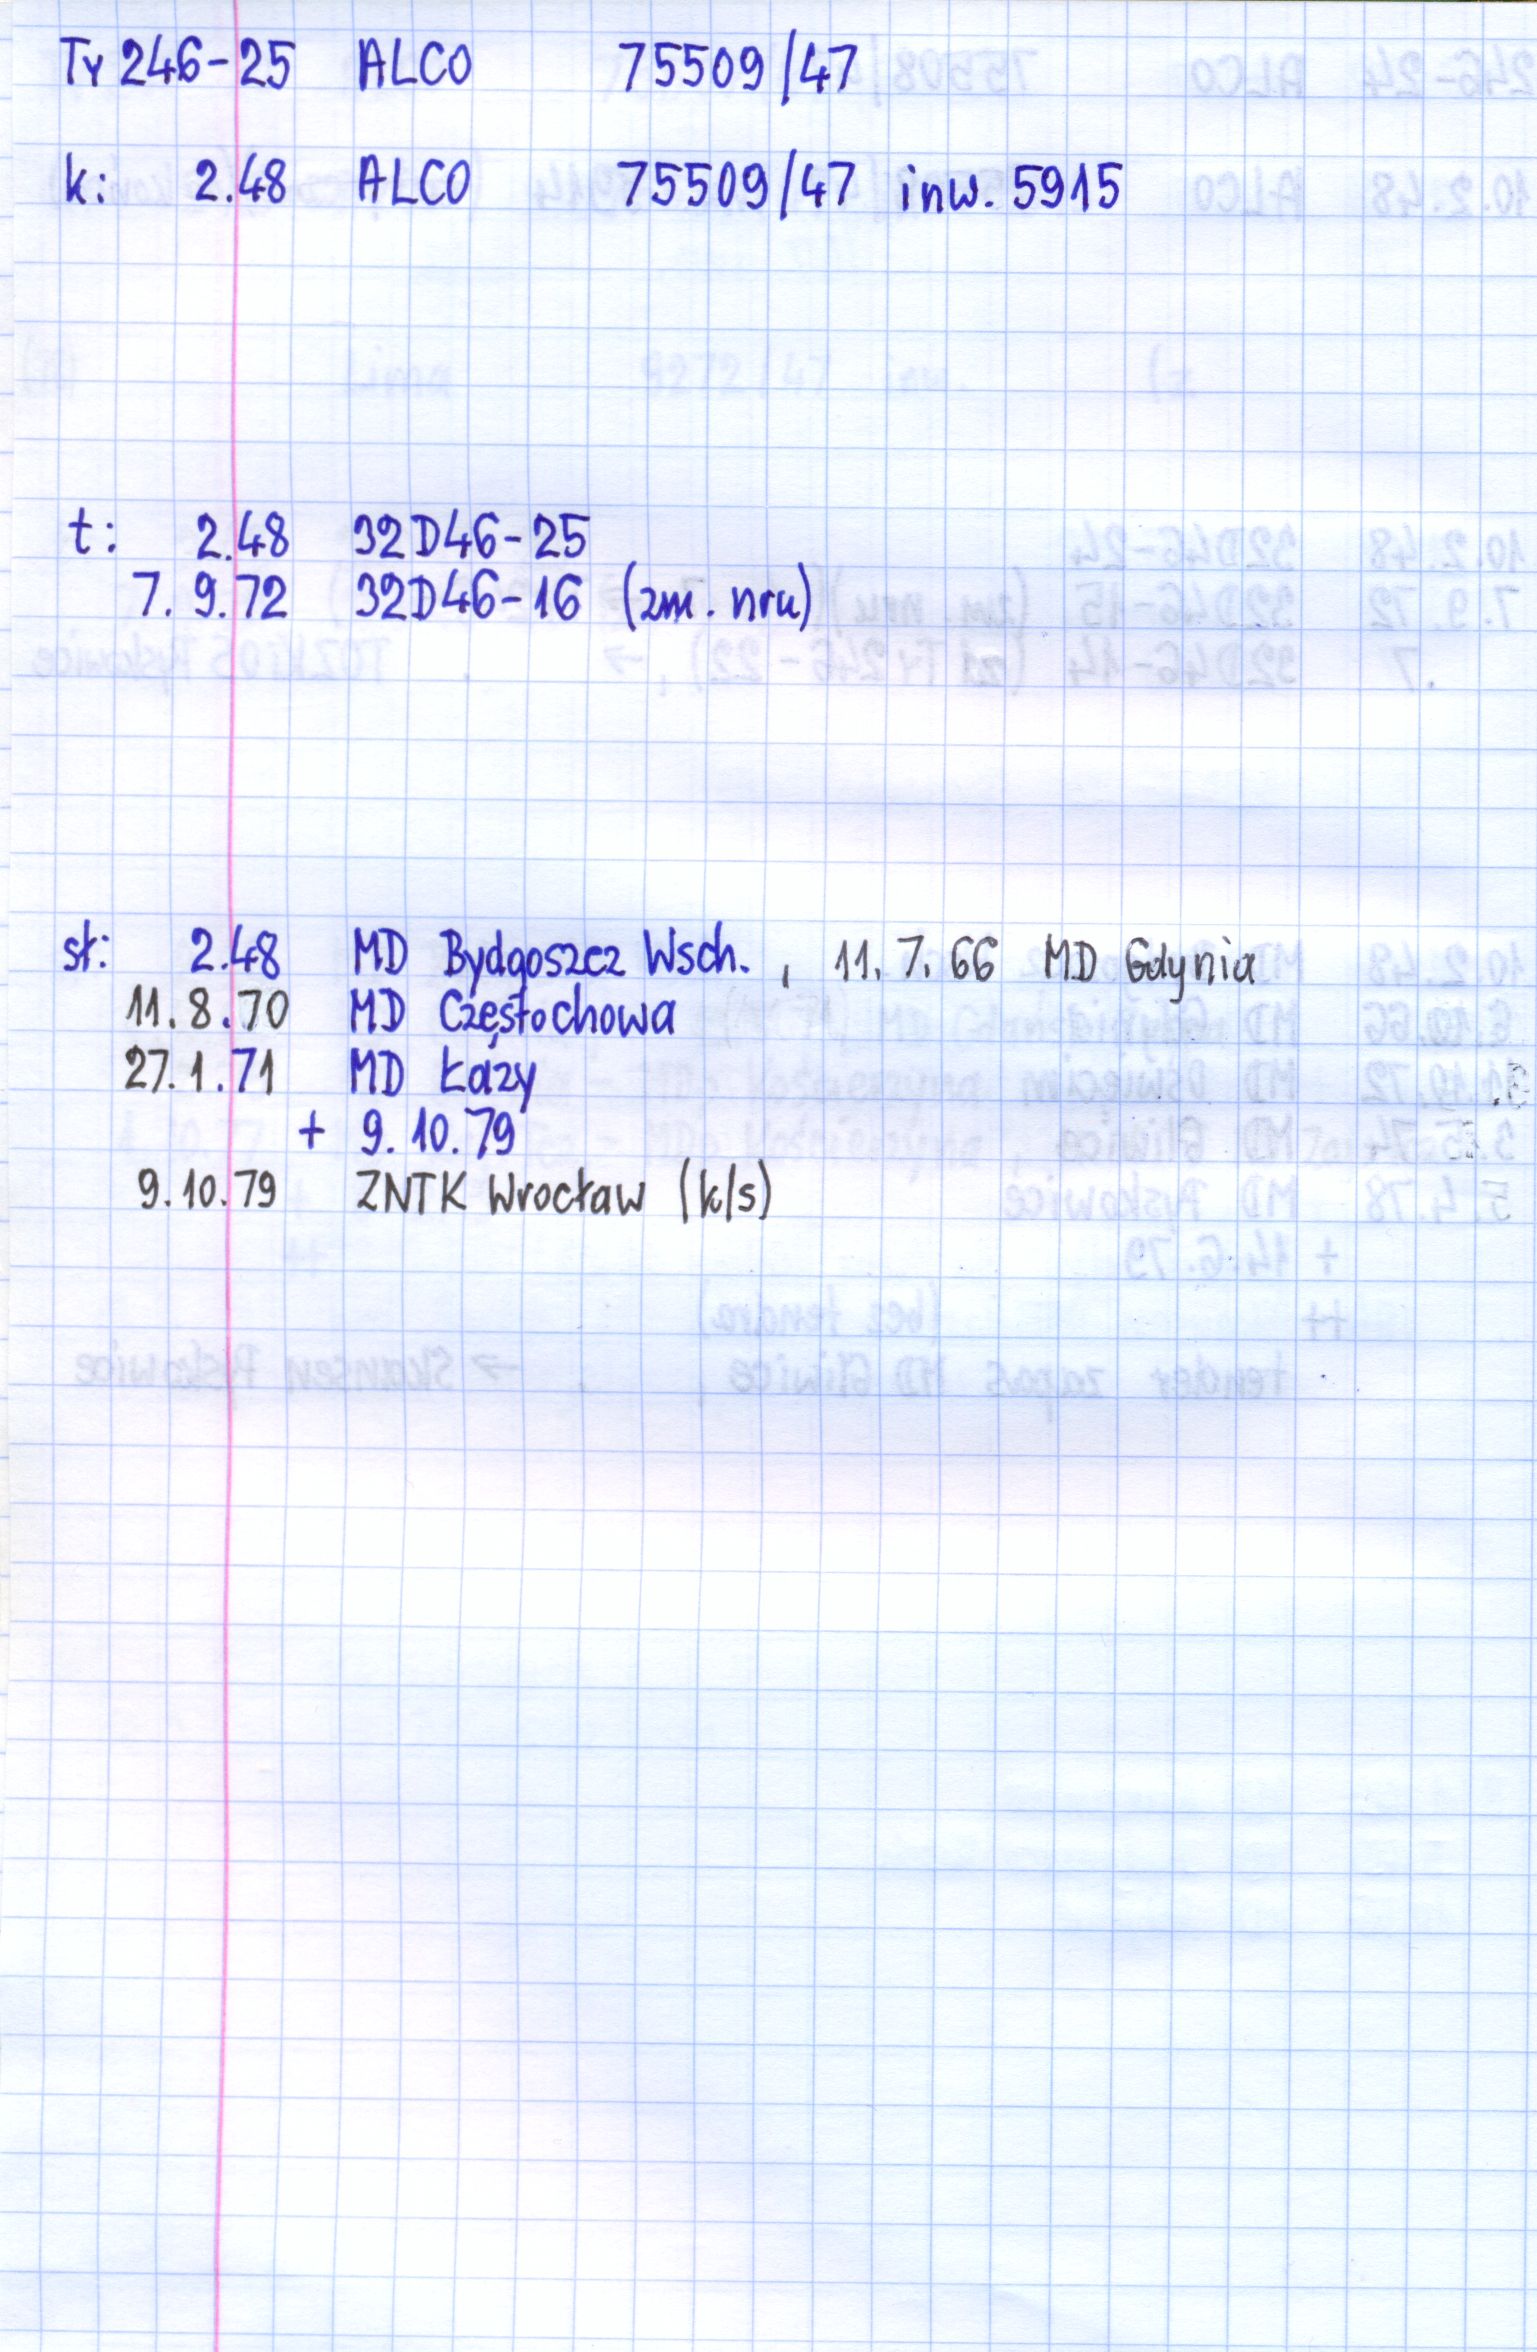 Ty 246-25 ALCO 75509/47
k: 2.48 ALCO 75509/47 inw. 5915
t: 2.48 32D46-25
7.9.72 32D46-16 (zm. nru)
sł: 2.48 MD Bydgoszcz Wsch. , 11.7.66 MD Gdynia
11.8.70 MD Częstochowa
27.1.71 MD Łazy
+ 9.10.79
9.10.79 ZNTK Wrocław (k/s)